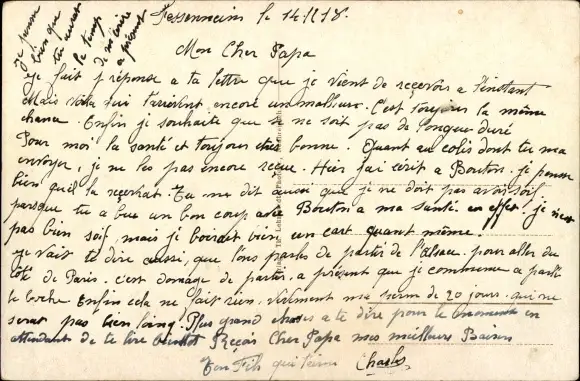 Fessenheim le 14.1.18.
Mon Cher Papa
Je fait réponse a ta lettre que je vient de recevoir a l'instant
Mais voila qui t'arrivent encore un malheur. C'est toujours la même
chance. Enfin je souhaite que se ne soit pas de longue duré
Pour moi la santé et toujour très bonne. Quant au colis dont tu ma
envoyer, je ne les pas encore reçue. Hier j'ai écrit a Bouton. je pense
bien qu'il la reçerhat. Tu me dit aussi que je ne doit pas avoir soif
parsque tu a bue un bon coup avec Bouton a ma santé en effet. je n'est
pas bien soif, mais je boirait bien un cart quant même.
Je vait te dire aussi, que l'ons parles de partir de l'Alsace. pour aller du
côté de Paris. c'est domage de partir. a présent que je commence a parlé
le boche Enfin cela ne fait rien. vivement ma perm de 20 jours. qui ne
serat pas bien loing. Plus grand choses a te dire pour le moment en
attendant de te lire bientot Reçois Cher Papa mes meilleurs Baisers
Ton Fils qui t'aime Charles
Je pense
bien que
tu aurat
le temp
de m'écrire
a présent